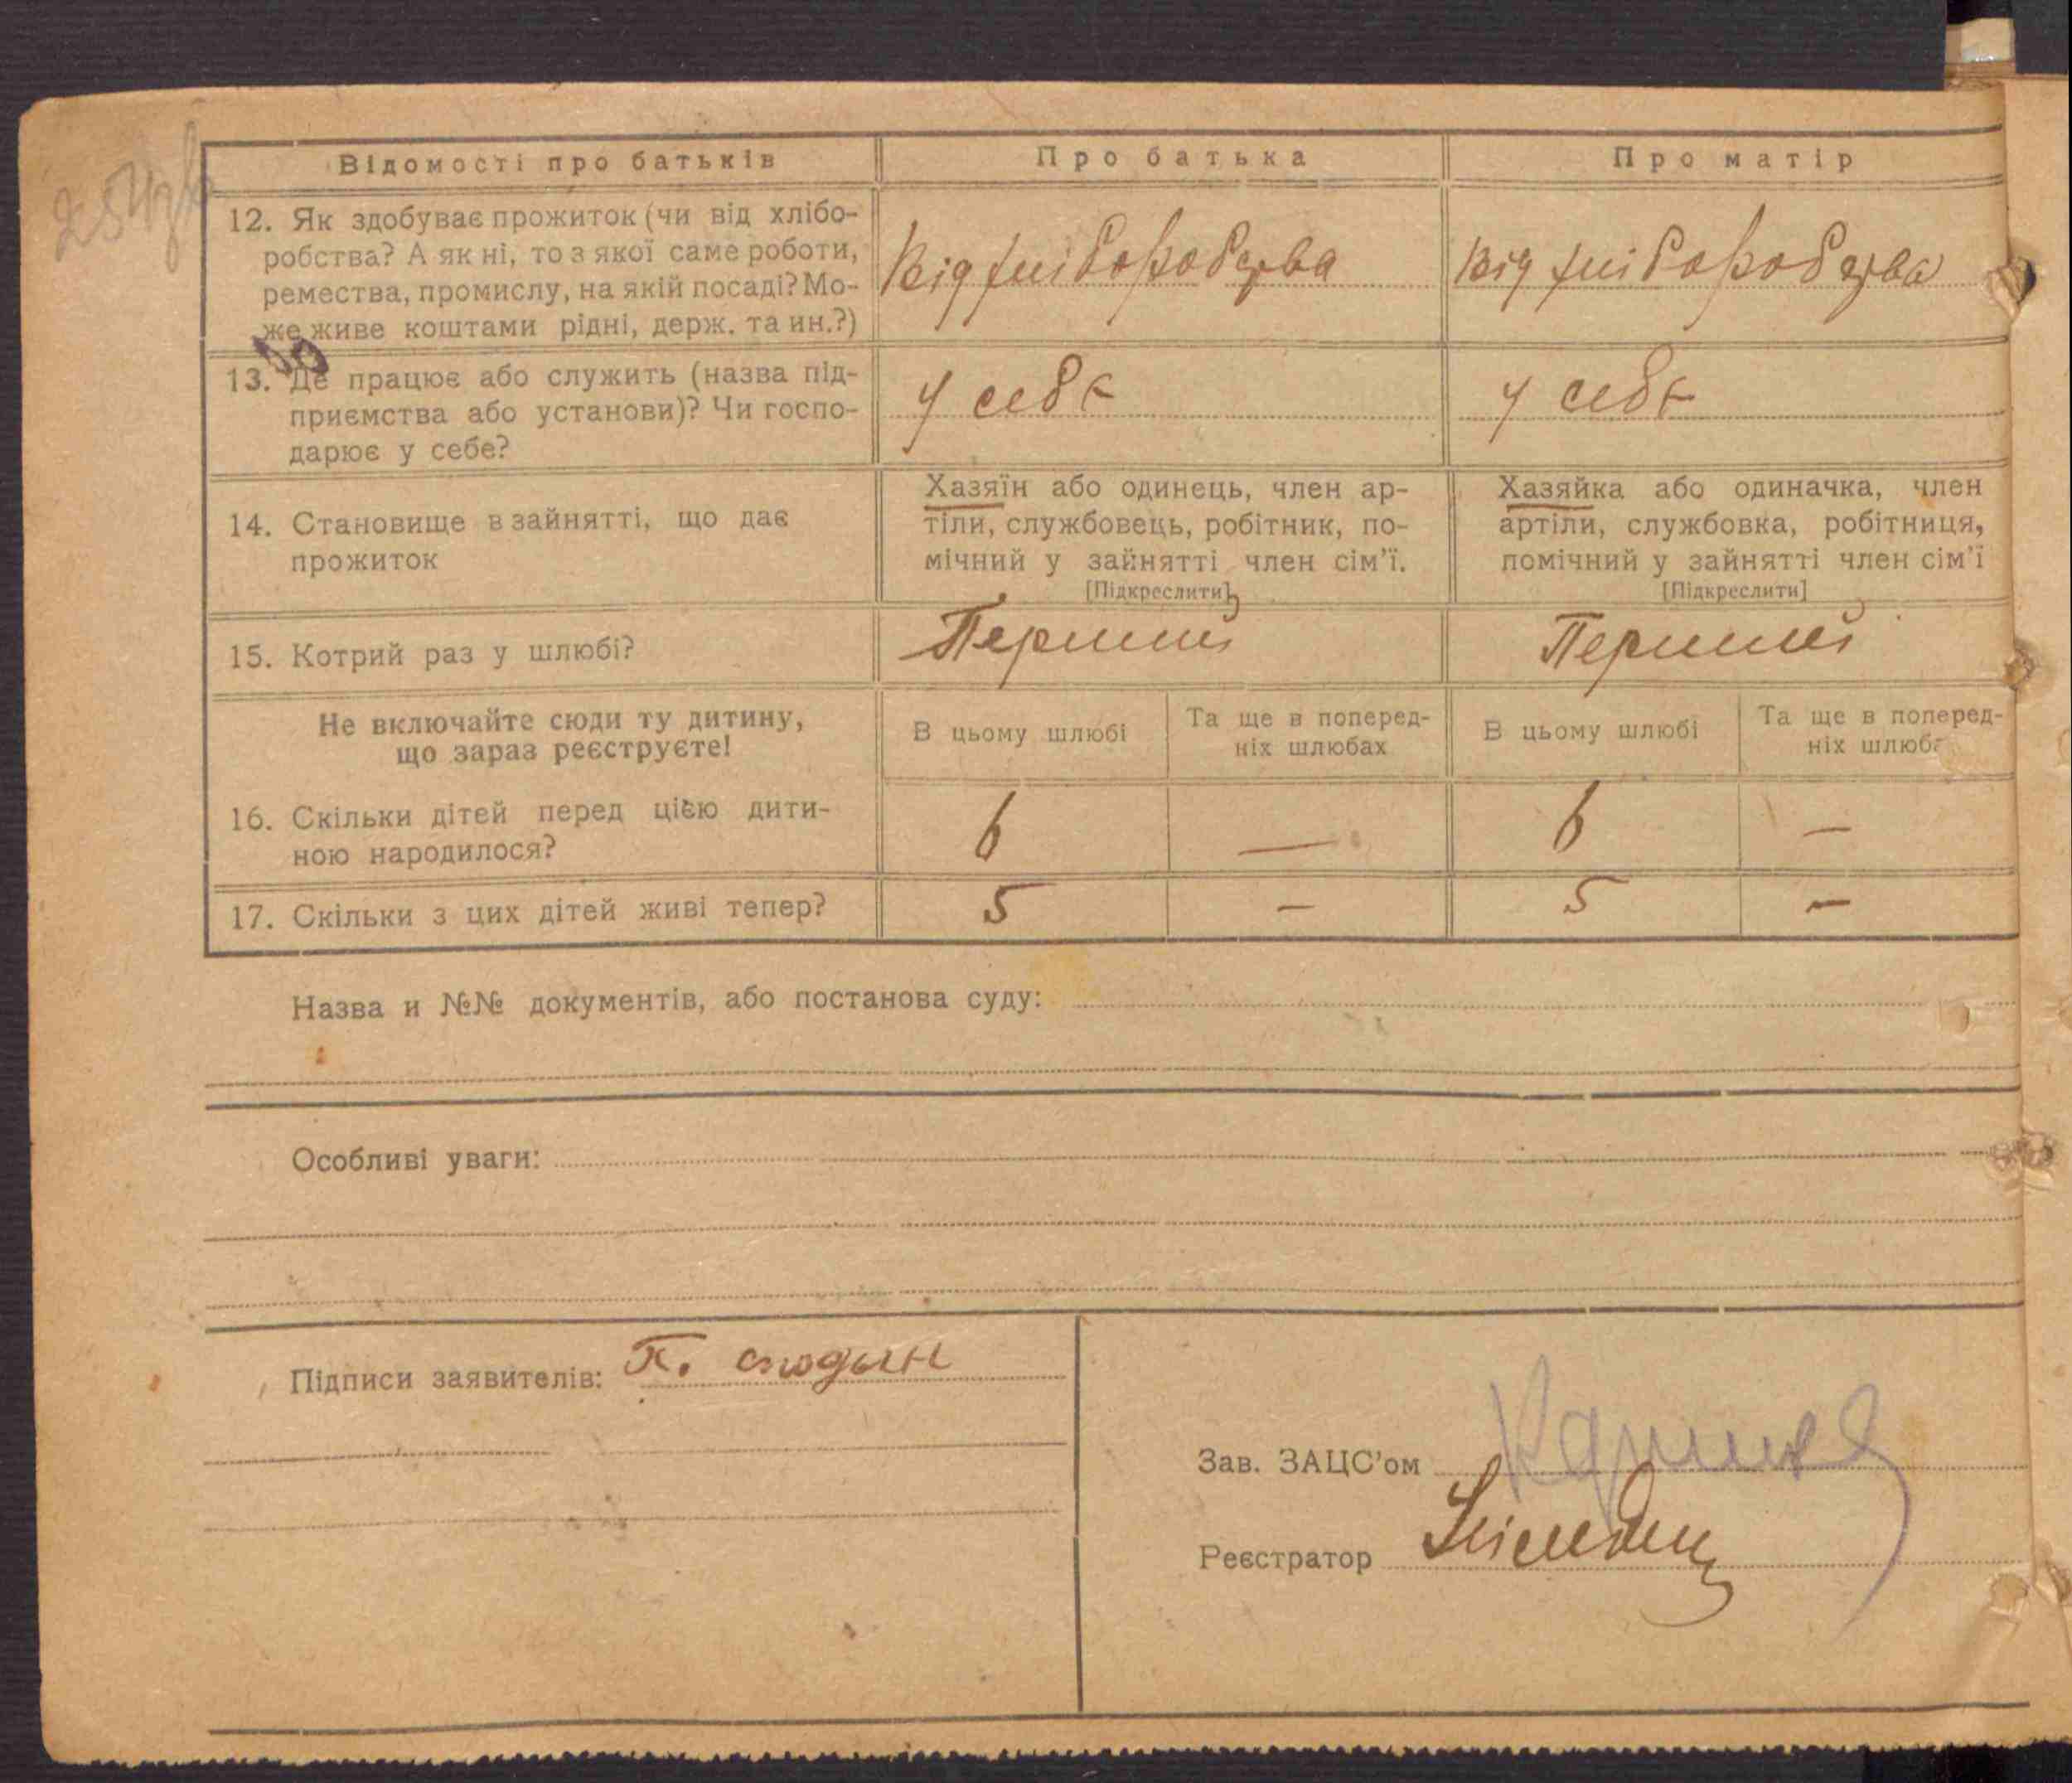 Відомості про батьків
Про батька
Про матір
12. Як здобуває прожиток (чи від хлібо-
робства? А як ні, то з якої саме роботи,
ремества, промислу, на якій посаді? Мо-
же живе коштами рідні, держ. та ин.?)
Від хліборобства
Від хліборобства
13. Де працює або служить (назва під-
приємства або установи)? Чи госпо-
дарює у себе?
У себе
У себе
14. Становище в зайнятті, що дає
прожиток
Хазяїн або одинець, член ар-
тіли, службовець, робітник, по-
мічний у зайнятті член сім'ї.
[Підкреслити]
Хазяйка або одиначка, член
артіли, службовка, робітниця,
помічний у зайнятті член сім'ї
[Підкреслити]
15. Котрий раз у шлюбі?
Перший
Перший
Не включайте сюди ту дитину,
що зараз реєструєте!
В цьому шлюбі
Та ще в поперед-
ніх шлюбах
В цьому шлюбі
Та ще в поперед-
ніх
16. Скільки дітей перед цією дити-
ною народилося?
6
—
6
—
17. Скільки з цих дітей живі тепер?
5
—
5
—
Назва и №№ документів, або постанова суду:
Особливі уваги:
Підписи заявителів:
Зав. ЗАЦС'ом
Реєстратор